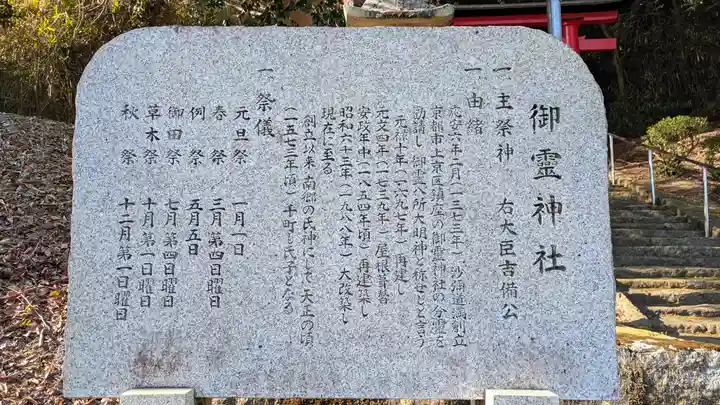 御霊神社
一 主祭神 右大臣吉備公
一 由緒
応安六年二月(一三七三年)沙弥道満創立
京都市上京区鎮座の御霊神社の分霊を
勧請し御霊八所大明神と称せしと言う
元禄十年(一六九七年)再建し
元文四年(一七三九年)屋根葺替
安政年中(一八五四年頃)再建築し
昭和六十三年(一九八八年)大改築し
現在に至る
創立以来南郷の氏神にして天正の頃
(一五七三年頃)千町も氏子となる
一 祭儀
元旦祭 一月一日
春祭 三月第四日曜日
例祭 五月五日
御田祭 七月第四日曜日
草木祭 十月第一日曜日
秋祭 十二月第一日曜日